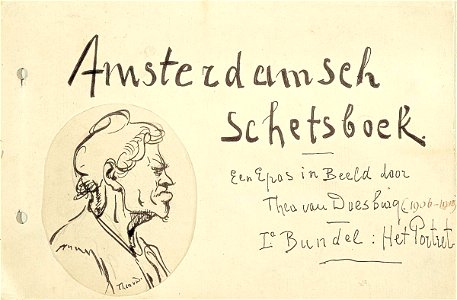 Amsterdamsch
Schetsboek.
Een Epos in Beeld door
Theo van Doesburg (1906-1910)
Ie Bundel: Het Portret
Theo v D.